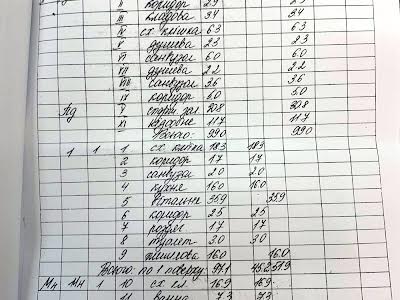 II коридор 29 29
III кладова 34 34
IV сх. клітка 63 63
V душева 23 23
VI санвузол 60 60
VII душева 22 22
VIII санвузол 36 36
IX коридор 50 50
Пд X спорт. зал 308 308
XI кладова 117 117
Всього: 990 990
1 1 1 сх. клітка 183 183
2 коридор 17 17
3 санвузол 20 20
4 кухня 160 160
5 вітальня 359 359
6 коридор 25 25
7 роздяг 17 17
8 туалет 30 30
9 160 160
Всього: по 1 поверху: 971 452 519
Мн Мн 1 10 сх. кл. 169 169
11 ванна 73 73